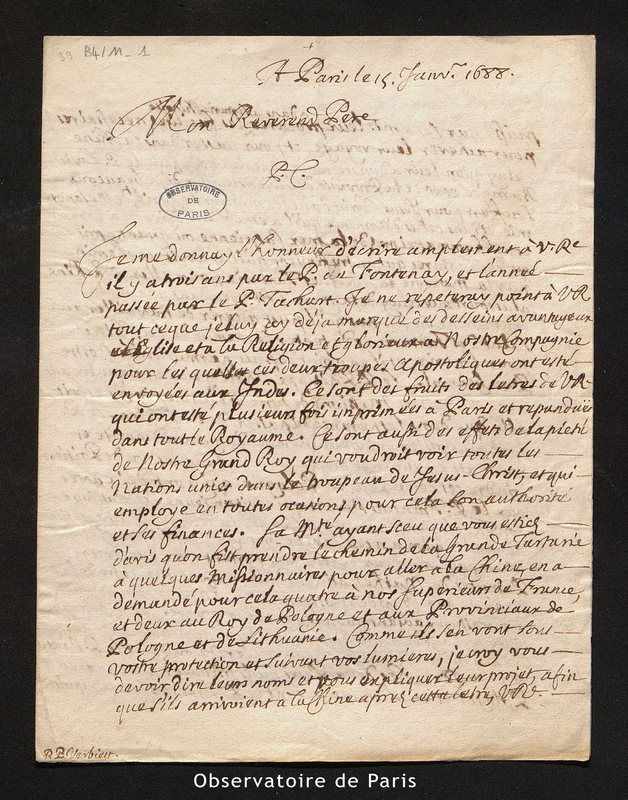 39 B4/11_1
A Paris le 15. Janvr. 1688.
Mon Reverend Pere
P. C.
OBSERVATOIRE
DE
PARIS
Je me donnay l'honneur d'écrire amplement à V. Re
il y a trois ans par le P. de Fontenay, et l'année
passée par le P. Tachart. Je ne repeteray point à VR
tout ce que je luy ay déja marqué des desseins avantageux
à l'Eglise et a la Religion et glorieux a Nostre Compagnie
pour les quelles ces deux troupes Apostoliques ont esté
envoyées aux Indes. Ce sont des fruits des letres de VR
qui ont esté plusieurs fois imprimées à Paris et repandües
dans tout le Royaume. Ce sont aussi des effets de la pieté
de Nostre Grand Roy qui voudroit voir toutes les
Nations unies dans le troupeau de Jesus-Christ, et qui
employe en toutes ocasions pour cela son authorité
et ses finances. Sa Mté ayant sceu que vous estiez
d'avis qu'on fist prendre le chemin de la Grande Tartarie
à quelques Missionnaires pour aller a la Chine, en a
demandé pour cela quatre à nos Superieurs de France,
et deux au Roy de Pologne et aux Provinciaux de
Pologne et de Lithuanie. Comme ils s'en vont sous
vostre protection et suivant vos lumieres, je croy vous
devoir dire leurs noms et vous expliquer leur projet, afin
que s'ils arrivoient a la Chine aprez cette letre, VRe
R. P. Verbiest.
Observatoire de Paris